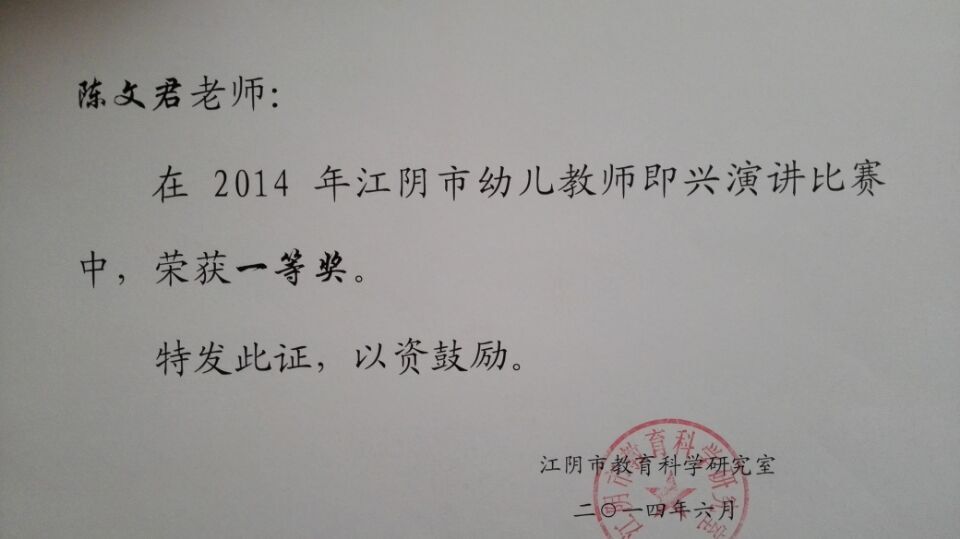 陈文君老师：
在 2014 年江阴市幼儿教师即兴演讲比赛
中，荣获一等奖。
特发此证，以资鼓励。
江阴市教育科学研究室
二〇一四年六月
江阴市教育科学研究室